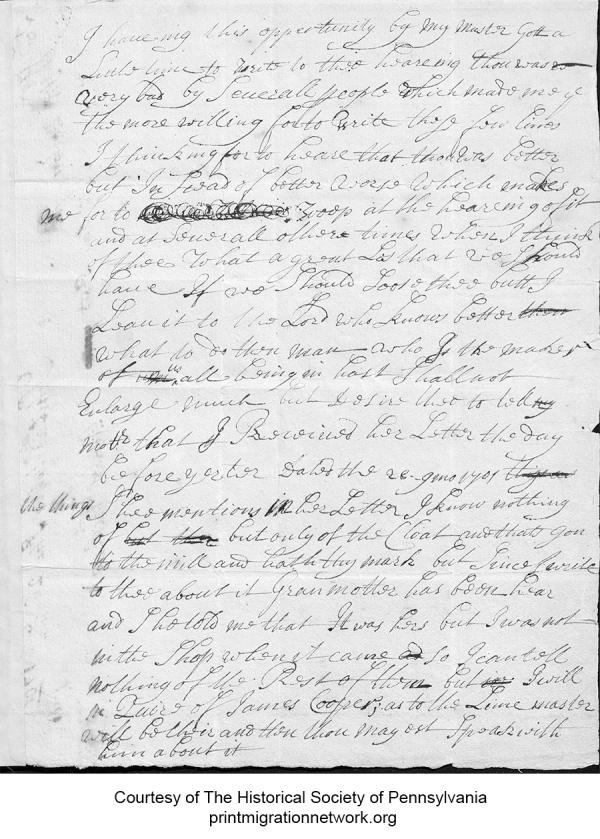 I haveing this opportunity by my Master Gott a
Little time to write to thee heareing thou was
very bad by Severall people which made me ye
the more willing for to write these few lines
I thinking for to heare that thou was better
but In stead of better worse which makes
me for to weep at the heareing of it
and at Severall othere times when I think
of thee What a great Los that we Should
have If we Should Loose thee butt I
Leave it to the Lord who knows better then
what to do then man who Is the maker
of us all being in hast I shall not
Enlarge much but desire thee to tell my
mother that I Received her Letter the day
before yester dated the 1701
the things Shee mentions in her Letter I know nothing
of but only of the Cloat and thats gon
to the mill and hath thy mark but Since I write
to thee about it Granmother has been hear
and Shee told me that It was hers but I was not
in the Shop when it came so I can tell
nothing of the Rest of them but I will
in Quire of James Cooper; as to the Time master
will be their and then thou mayest Speak with
him about it
Courtesy of The Historical Society of Pennsylvania
printmigrationnetwork.org